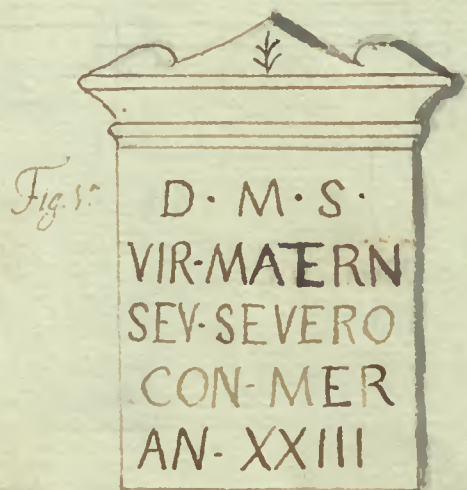 Fig. 1.ª
D · M · S ·
VIR-MATERN
SEV-SEVERO
CON-MER
AN- XXIII